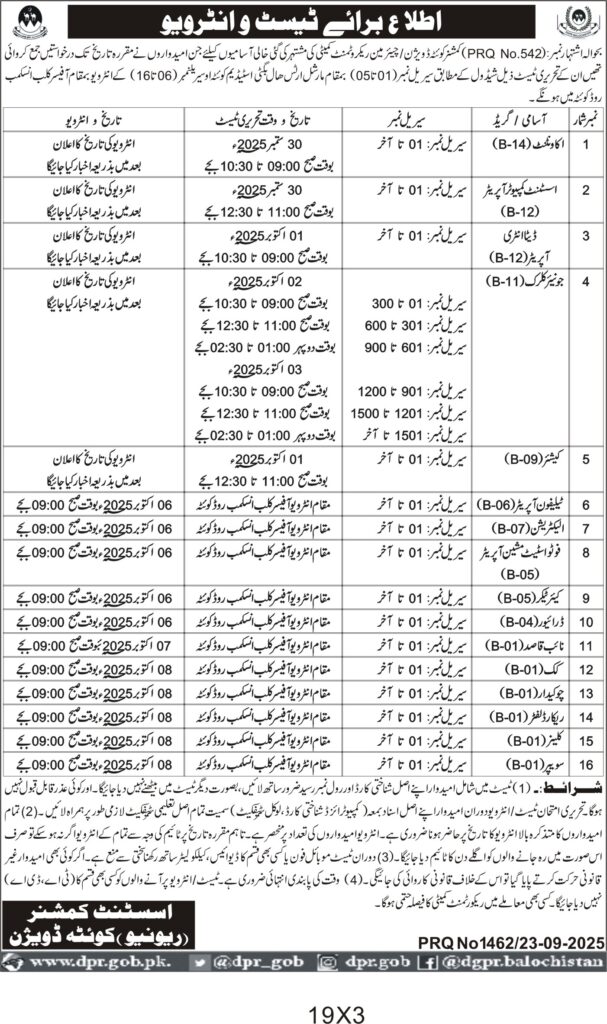 اطلاع برائے ٹیسٹ و انٹرویو
بحوالہ اشتہار نمبر: (PRQ No.542) کمشنر کوئٹہ ڈویژن / چیئرمین ریکروٹمنٹ کمیٹی کی مشتہر کی گئی خالی آسامیوں کیلئے جن امیدواروں نے مقررہ تاریخ تک درخواستیں جمع کروائی
تھیں ان کے تحریری ٹیسٹ ذیل شیڈول کے مطابق سیریل نمبر (01 تا 05) بمقام مارشل آرٹس ہال ملٹی اسٹیڈیم کوئٹہ اور سیریل نمبر (06 تا 16) کے انٹرویو بمقام آفیسر کلب انسکمب
روڈ کوئٹہ میں ہونگے۔
نمبر شمار آسامی / گریڈ سیریل نمبر تاریخ و وقت تحریری ٹیسٹ تاریخ و انٹرویو
1 اکاؤنٹنٹ (B-14) سیریل نمبر: 01 تا آخر 30 ستمبر 2025ء انٹرویو کی تاریخ کا اعلان
بوقت صبح 09:00 تا 10:30 بجے بعد میں بذریعہ اخبار کیا جائیگا
2 اسسٹنٹ کمپیوٹر آپریٹر سیریل نمبر: 01 تا آخر 30 ستمبر 2025ء انٹرویو کی تاریخ کا اعلان
(B-12) بوقت صبح 11:00 تا 12:30 بجے بعد میں بذریعہ اخبار کیا جائیگا
3 ڈیٹا انٹری سیریل نمبر: 01 تا آخر 01 اکتوبر 2025ء انٹرویو کی تاریخ کا اعلان
آپریٹر (B-12) بوقت صبح 09:00 تا 10:30 بجے بعد میں بذریعہ اخبار کیا جائیگا
4 جونیئر کلرک (B-11) 02 اکتوبر 2025ء انٹرویو کی تاریخ کا اعلان
سیریل نمبر: 01 تا 300 بوقت صبح 09:00 تا 10:30 بجے بعد میں بذریعہ اخبار کیا جائیگا
سیریل نمبر: 301 تا 600 بوقت صبح 11:00 تا 12:30 بجے
سیریل نمبر: 601 تا 900 بوقت دوپہر 01:00 تا 02:30 بجے
03 اکتوبر 2025ء
سیریل نمبر: 901 تا 1200 بوقت صبح 09:00 تا 10:30 بجے
سیریل نمبر: 1201 تا 1500 بوقت صبح 11:00 تا 12:30 بجے
سیریل نمبر: 1501 تا آخر بوقت دوپہر 01:00 تا 02:30 بجے
5 کیشئر (B-09) سیریل نمبر: 01 تا آخر 01 اکتوبر 2025ء انٹرویو کی تاریخ کا اعلان
بوقت صبح 11:00 تا 12:30 بجے بعد میں بذریعہ اخبار کیا جائیگا
6 ٹیلیفون آپریٹر (B-06) سیریل نمبر: 01 تا آخر مقام انٹرویو آفیسر کلب انسکمب روڈ کوئٹہ 06 اکتوبر 2025ء بوقت صبح 09:00 بجے
7 الیکٹریشن (B-07) سیریل نمبر: 01 تا آخر مقام انٹرویو آفیسر کلب انسکمب روڈ کوئٹہ 06 اکتوبر 2025ء بوقت صبح 09:00 بجے
8 فوٹو اسٹیٹ مشین آپریٹر سیریل نمبر: 01 تا آخر مقام انٹرویو آفیسر کلب انسکمب روڈ کوئٹہ 06 اکتوبر 2025ء بوقت صبح 09:00 بجے
(B-05)
9 کیئر ٹیکر (B-05) سیریل نمبر: 01 تا آخر مقام انٹرویو آفیسر کلب انسکمب روڈ کوئٹہ 06 اکتوبر 2025ء بوقت صبح 09:00 بجے
10 ڈرائیور (B-04) سیریل نمبر: 01 تا آخر مقام انٹرویو آفیسر کلب انسکمب روڈ کوئٹہ 06 اکتوبر 2025ء بوقت صبح 09:00 بجے
11 نائب قاصد (B-01) سیریل نمبر: 01 تا آخر مقام انٹرویو آفیسر کلب انسکمب روڈ کوئٹہ 07 اکتوبر 2025ء بوقت صبح 09:00 بجے
12 کک (B-01) سیریل نمبر: 01 تا آخر مقام انٹرویو آفیسر کلب انسکمب روڈ کوئٹہ 08 اکتوبر 2025ء بوقت صبح 09:00 بجے
13 چوکیدار (B-01) سیریل نمبر: 01 تا آخر مقام انٹرویو آفیسر کلب انسکمب روڈ کوئٹہ 08 اکتوبر 2025ء بوقت صبح 09:00 بجے
14 ریکارڈ لفٹر (B-01) سیریل نمبر: 01 تا آخر مقام انٹرویو آفیسر کلب انسکمب روڈ کوئٹہ 08 اکتوبر 2025ء بوقت صبح 09:00 بجے
15 کلینر (B-01) سیریل نمبر: 01 تا آخر مقام انٹرویو آفیسر کلب انسکمب روڈ کوئٹہ 08 اکتوبر 2025ء بوقت صبح 09:00 بجے
16 سویپر (B-01) سیریل نمبر: 01 تا آخر مقام انٹرویو آفیسر کلب انسکمب روڈ کوئٹہ 08 اکتوبر 2025ء بوقت صبح 09:00 بجے
شرائط:۔ (1) ٹیسٹ میں شامل امیدوار اپنے اصل شناختی کارڈ اور رول نمبر رسید ضرور ساتھ لائیں، بصورت دیگر ٹیسٹ میں بیٹھنے نہیں دیا جائیگا۔ اور کوئی عذر قابل قبول نہیں
ہوگا۔ تحریری امتحان ٹیسٹ / انٹرویو دوران امیدوار اپنے اصل اسناد بمعہ (کمپیوٹرائزڈ شناختی کارڈ، لوکل سرٹیفکیٹ) سمیت تمام اصل تعلیمی سرٹیفکیٹ لازمی طور پر ہمراہ لائیں۔ (2) تمام
امیدواروں کا متذکرہ بالا انٹرویو کا تاریخ پر حاضر ہونا ضروری ہے۔ انٹرویو امیدواروں کی تعداد پر منحصر ہے۔ تاہم مقررہ تاریخ پر ٹائم کی وجہ سے تمام کے انٹرویو اگر نہ ہو سکے تو صرف
اس صورت میں رہ جانے والوں کو اگلے دن کا ٹائم دیا جائیگا۔ (3) دوران ٹیسٹ موبائل فون یا کسی بھی قسم کا ڈیوائس، کیلکولیٹر ساتھ رکھنا سختی سے منع ہے۔ اگر کوئی بھی امیدوار غیر
قانونی حرکت کرتے پایا گیا تو اس کے خلاف قانونی کاروائی کی جائیگی۔ (4) وقت کی پابندی انتہائی ضروری ہے۔ ٹیسٹ / انٹرویو پر آنے والوں کو کسی بھی قسم کا (ٹی اے، ڈی اے)
نہیں دیا جائیگا۔ کسی بھی معاملے میں ریکروٹمنٹ کمیٹی کا فیصلہ حتمی ہوگا۔
اسسٹنٹ کمشنر
(ریونیو) کوئٹہ ڈویژن
PRQ No1462/23-09-2025
www.dpr.gob.pk. @dpr_gob dpr.balochistan @dgpr.balochistan
19X3